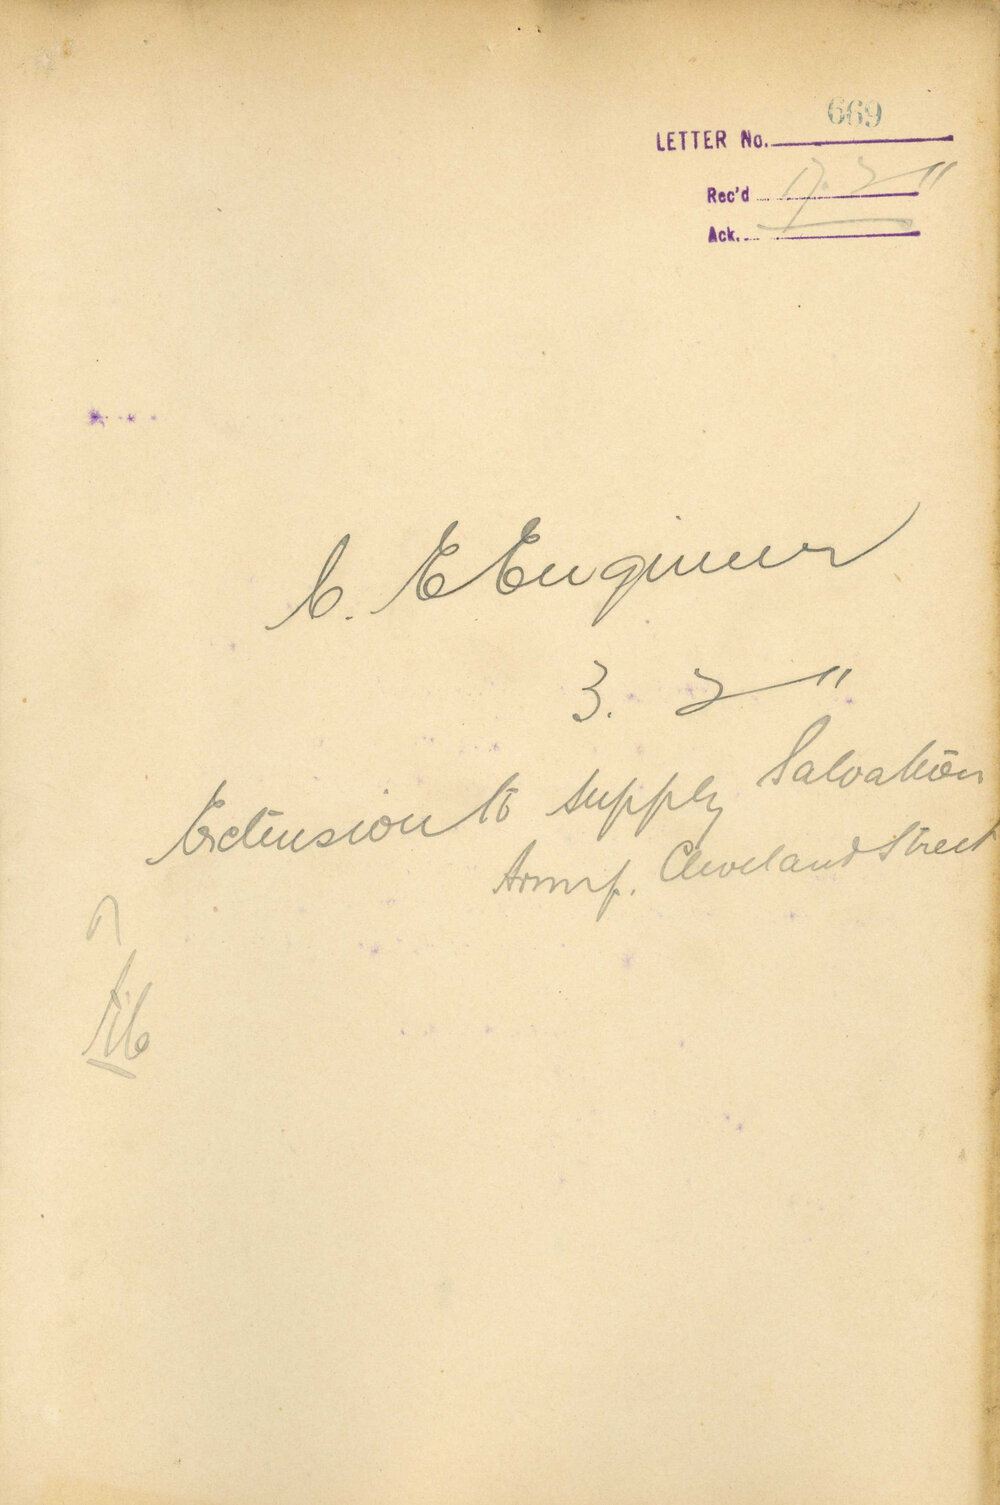 669
LETTER No.
Rec'd 17. 2 11
Ack.
C. E Engineer
3. 2 11
Extension to supply Salvation
Army. Cleveland Street